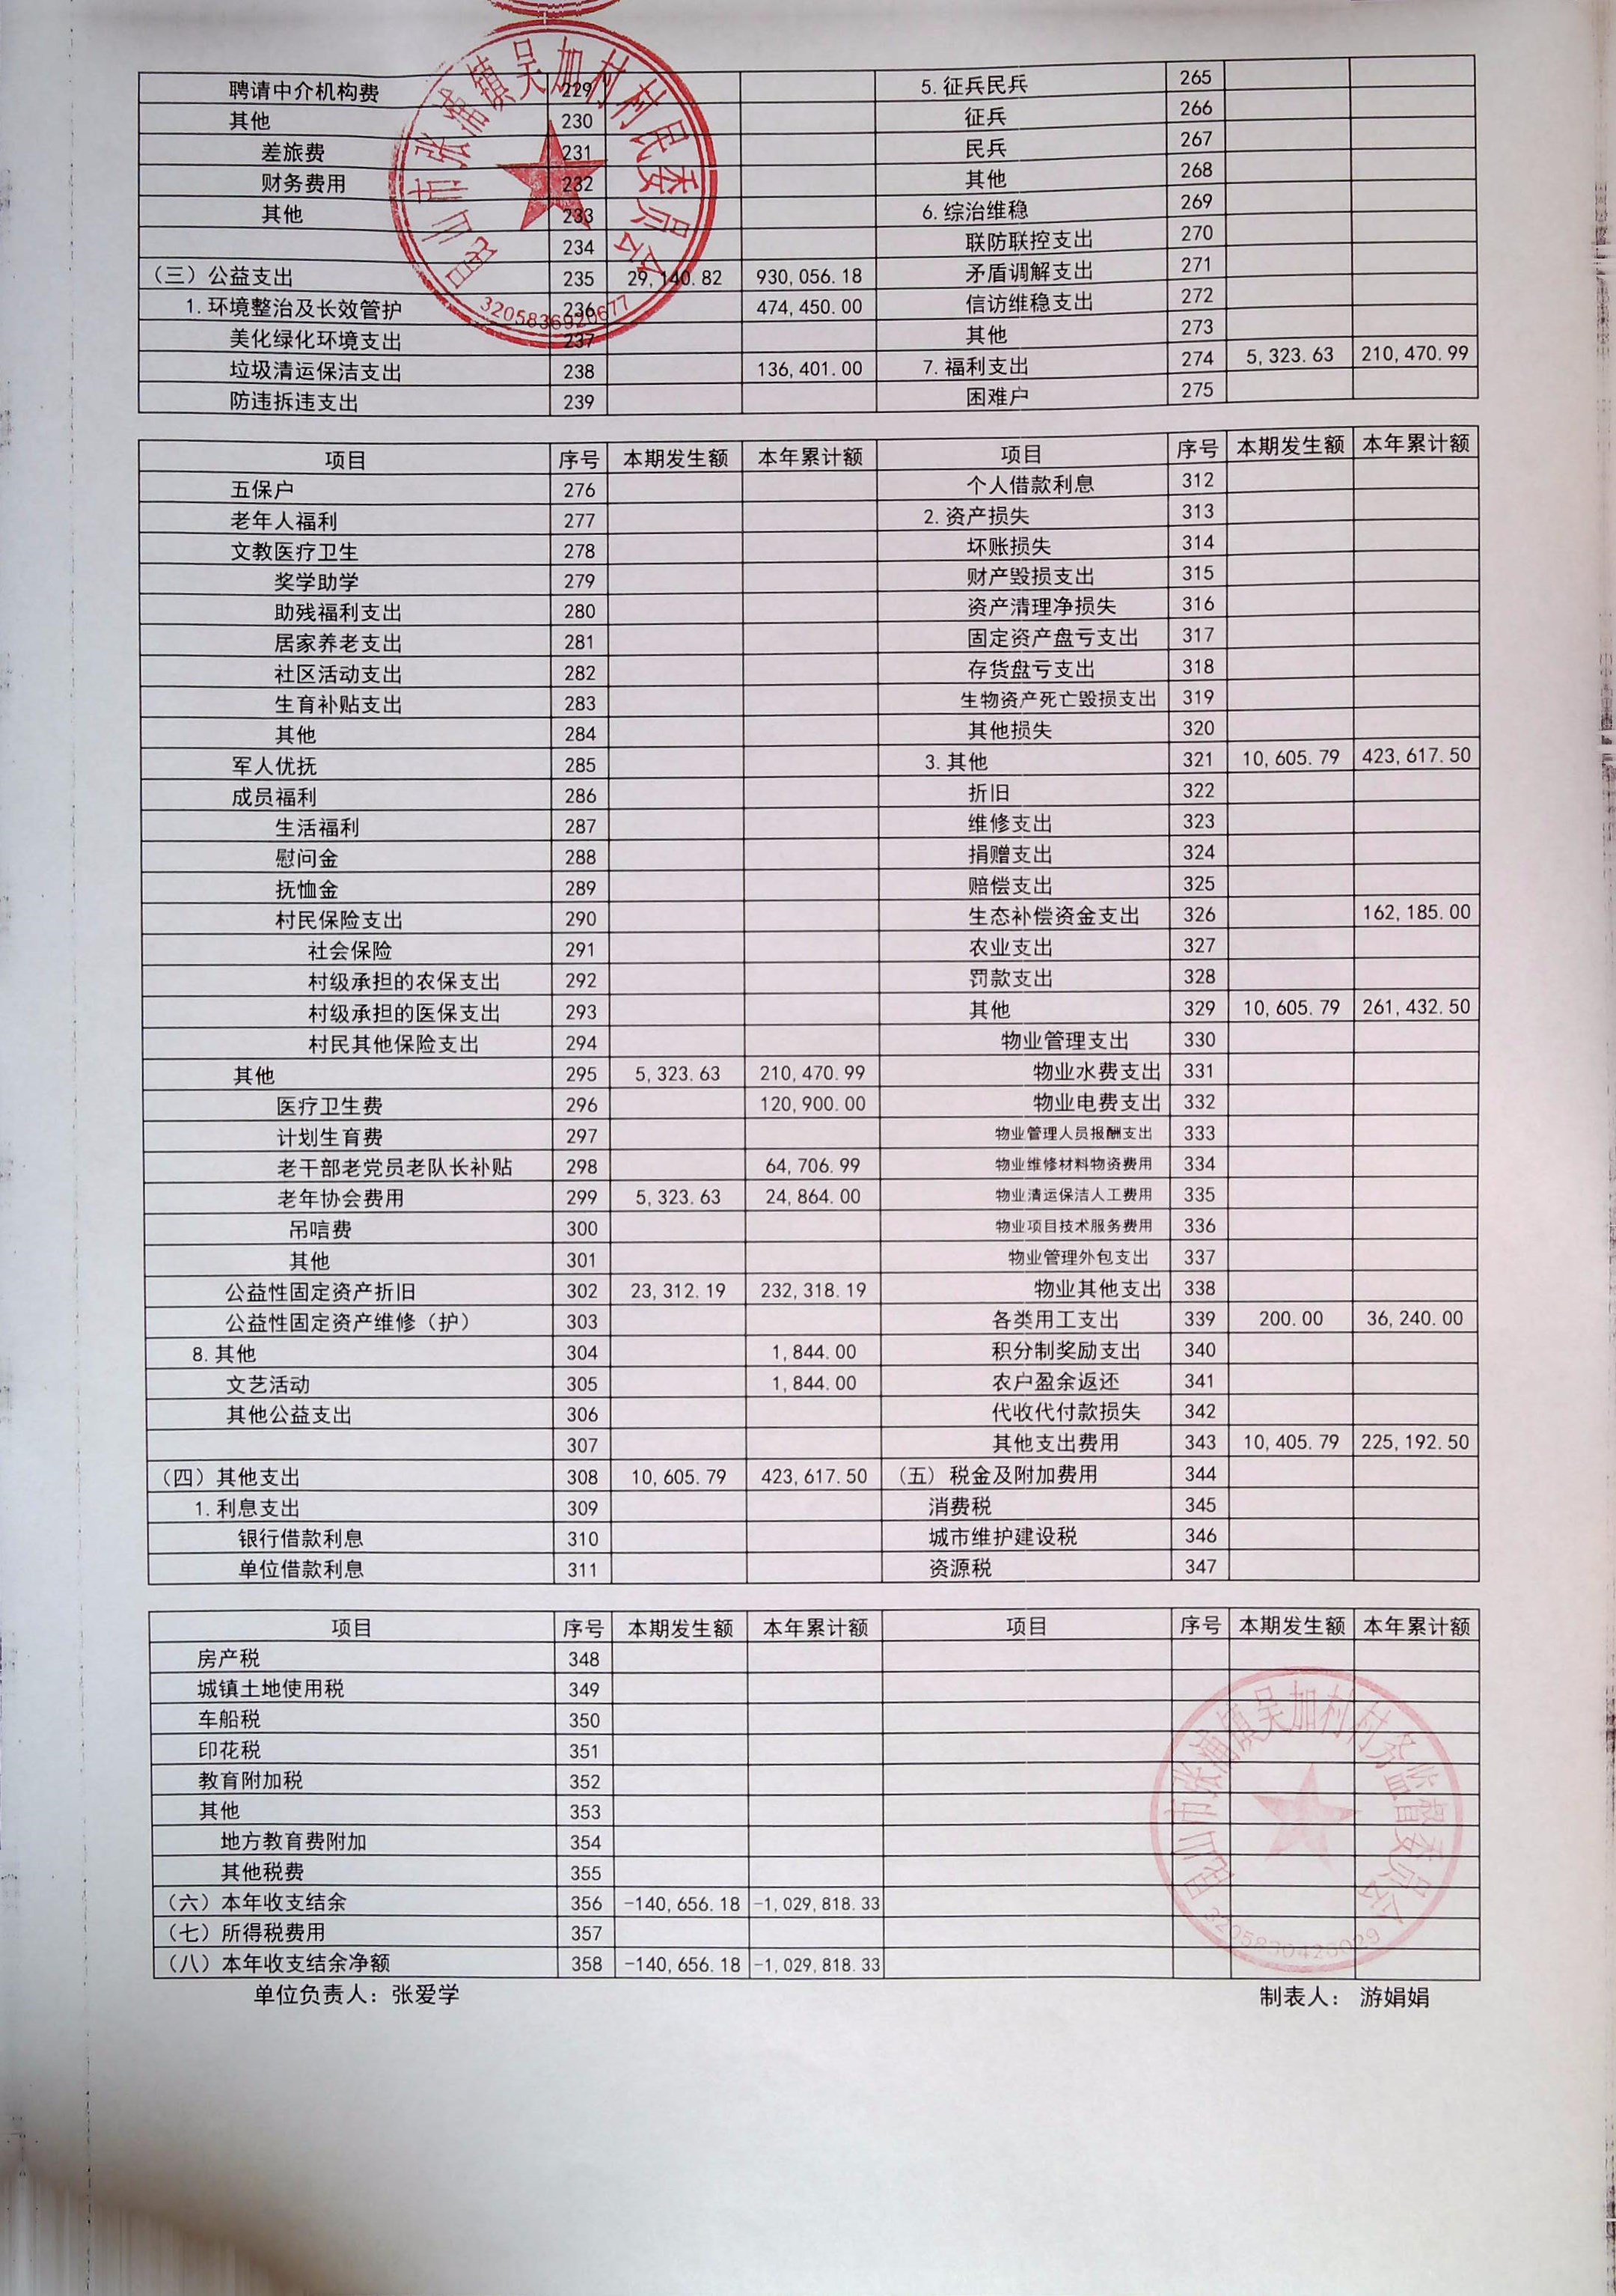 昆山市张浦镇吴加村村民委员会
3205836920677
聘请中介机构费 229 5.征兵民兵 265
其他 230 征兵 266
差旅费 231 民兵 267
财务费用 232 其他 268
其他 233 6.综治维稳 269
234 联防联控支出 270
（三）公益支出 235 29,140.82 930,056.18 矛盾调解支出 271
1.环境整治及长效管护 236 474,450.00 信访维稳支出 272
美化绿化环境支出 237 其他 273
垃圾清运保洁支出 238 136,401.00 7.福利支出 274 5,323.63 210,470.99
防违拆违支出 239 困难户 275
项目 序号 本期发生额 本年累计额 项目 序号 本期发生额 本年累计额
五保户 276 个人借款利息 312
老年人福利 277 2.资产损失 313
文教医疗卫生 278 坏账损失 314
奖学助学 279 财产毁损支出 315
助残福利支出 280 资产清理净损失 316
居家养老支出 281 固定资产盘亏支出 317
社区活动支出 282 存货盘亏支出 318
生育补贴支出 283 生物资产死亡毁损支出 319
其他 284 其他损失 320
军人优抚 285 3.其他 321 10,605.79 423,617.50
成员福利 286 折旧 322
生活福利 287 维修支出 323
慰问金 288 捐赠支出 324
抚恤金 289 赔偿支出 325
村民保险支出 290 生态补偿资金支出 326 162,185.00
社会保险 291 农业支出 327
村级承担的农保支出 292 罚款支出 328
村级承担的医保支出 293 其他 329 10,605.79 261,432.50
村民其他保险支出 294 物业管理支出 330
其他 295 5,323.63 210,470.99 物业水费支出 331
医疗卫生费 296 120,900.00 物业电费支出 332
计划生育费 297 物业管理人员报酬支出 333
老干部老党员老队长补贴 298 64,706.99 物业维修材料物资费用 334
老年协会费用 299 5,323.63 24,864.00 物业清运保洁人工费用 335
吊唁费 300 物业项目技术服务费用 336
其他 301 物业管理外包支出 337
公益性固定资产折旧 302 23,312.19 232,318.19 物业其他支出 338
公益性固定资产维修（护） 303 各类用工支出 339 200.00 36,240.00
8.其他 304 1,844.00 积分制奖励支出 340
文艺活动 305 1,844.00 农户盈余返还 341
其他公益支出 306 代收代付款损失 342
307 其他支出费用 343 10,405.79 225,192.50
（四）其他支出 308 10,605.79 423,617.50 （五）税金及附加费用 344
1.利息支出 309 消费税 345
银行借款利息 310 城市维护建设税 346
单位借款利息 311 资源税 347
项目 序号 本期发生额 本年累计额 项目 序号 本期发生额 本年累计额
房产税 348
城镇土地使用税 349
车船税 350
印花税 351
教育附加税 352
其他 353
地方教育费附加 354
其他税费 355
（六）本年收支结余 356 -140,656.18 -1,029,818.33
（七）所得税费用 357
（八）本年收支结余净额 358 -140,656.18 -1,029,818.33
昆山市张浦镇吴加村村务监督委员会
单位负责人：张爱学 制表人：游娟娟